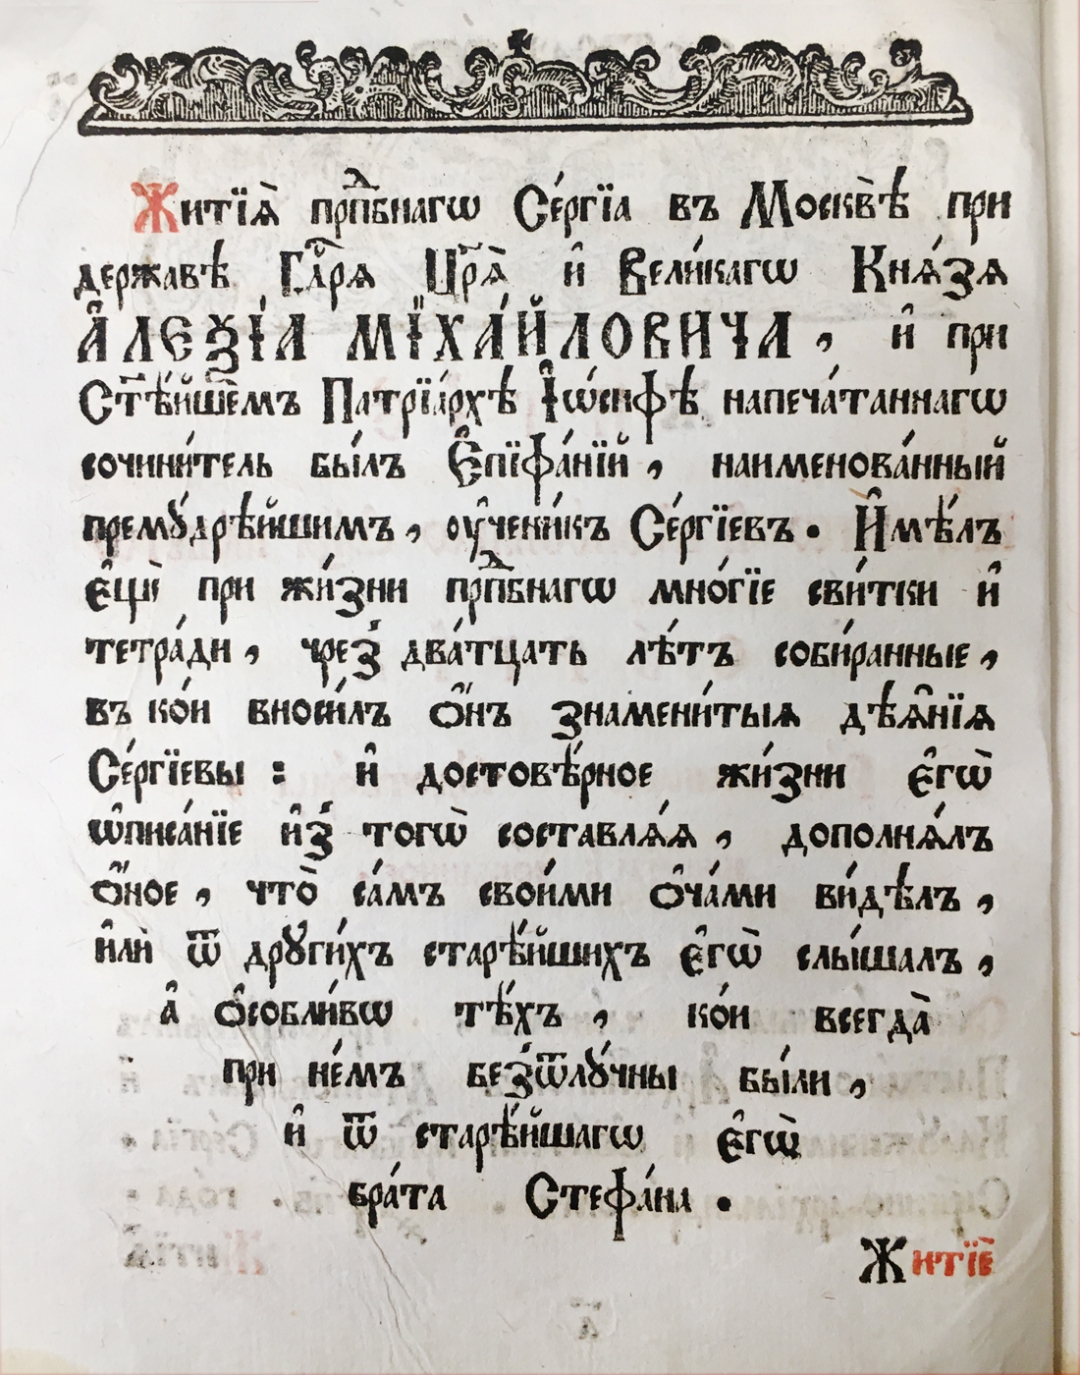 Житїѧ̀ прⷣпбнагѡ Се́ргїа въ Москвѣ̀ при
держа́вѣ Гдⷭ҇рѧ Цр҃ѧ̀ и҆ Вели́кагѡ Кнѧ́зѧ
А҆ЛЕѮІ́А МІХА́ЙЛОВИЧА, и҆ при
Ст҃ѣ́йшемъ Патрїа́рхѣ І҆ѡ́сифѣ напеча́таннагѡ
сочини́тель бы́лъ Є҆пїфа́нїй, наименова́нный
премꙋ́дрѣйшимъ, оу҆чени́къ Се́ргїевъ. И҆мѣ́лъ
є҆щѐ при жи́зни прⷣпбнагѡ мно́гїе сви́тки и҆
тетра́ди, чрез̾ два́тцать лѣ́тъ соби́ранные,
въ ко́и вноси́лъ ѻ҆́нъ знамени́тыѧ дѣѧ҆́нїѧ
Се́ргїевы : и҆ достовѣ́рное жи́зни є҆гѡ̀
ѡ҆писа́нїе и҆з̾ тогѡ̀ составлѧ́ѧ, дополнѧ́лъ
ѻ҆́ное, что̀ са́мъ свои́ми ѻ҆ча́ми ви́дѣлъ,
и҆лѝ ѿ дрꙋги́хъ старѣ́йшихъ є҆гѡ̀ слы́шалъ,
а҆ ѻ҆собли́вѡ тѣ́хъ, ко́и всегда̀
при не́мъ без̾ѿлꙋ́чны бы́ли,
и҆ ѿ старѣ́йшагѡ є҆гѡ̀
бра́та Стефа́на.
Житїѐ